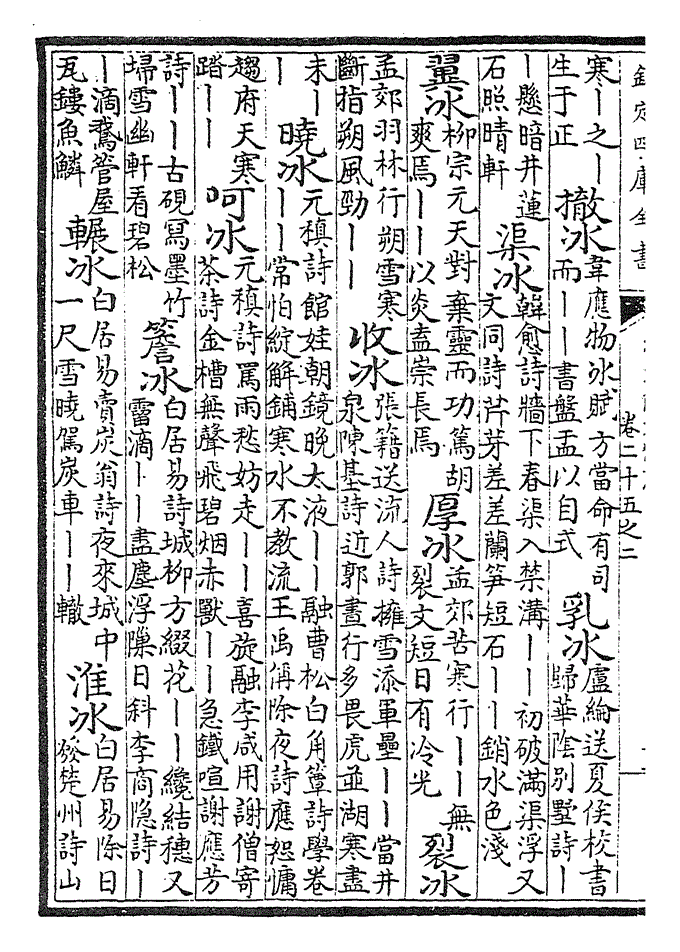 欽定四庫全書
卷二十五之二
寒｜之｜生于正 撤冰 韋應物冰賦方當命有司而｜｜書盤盂以自式 乳冰 盧綸送夏侯校書歸華陰别墅詩｜
｜懸暗井蓮石照晴軒 渠冰 韓愈詩牆下春渠入禁溝｜｜初破滿渠浮又文同詩芹芽差差蘭笋短石｜｜銷水色淺
翼冰 柳宗元天對棄靈而功篤胡爽焉｜｜以炎盍崇長焉 厚冰 孟郊苦寒行｜｜無裂文短日有冷光 裂冰
孟郊羽林行朔雪寒斷指朔風勁｜｜ 收冰 張籍送流人詩擁雪添軍壘｜｜當井泉陳基詩近郭晝行多畏虎並湖寒盡
未｜｜ 曉冰 元稹詩館娃朝鏡晚太液｜｜融曹松白角簟詩學卷｜｜常怕綻解鋪寒水不教流王禹偁除夜詩應恕慵
趨府天寒踏｜｜ 呵冰 元稹詩罵雨愁妨走｜｜喜旋融李咸用謝僧寄茶詩金槽無聲飛碧烟赤獸｜｜急鐵喧謝應芳
詩｜｜古硯寫墨竹埽雪幽軒看碧松 簷冰 白居易詩城柳方綴花｜｜纔結穗又霤滴｜｜盡塵浮隟日斜李商隱詩｜
｜滴鵞管屋瓦鏤魚鱗 輾冰 白居易賣炭翁詩夜來城中一尺雪曉駕炭車｜｜轍 淮冰 白居易除日發楚州詩山